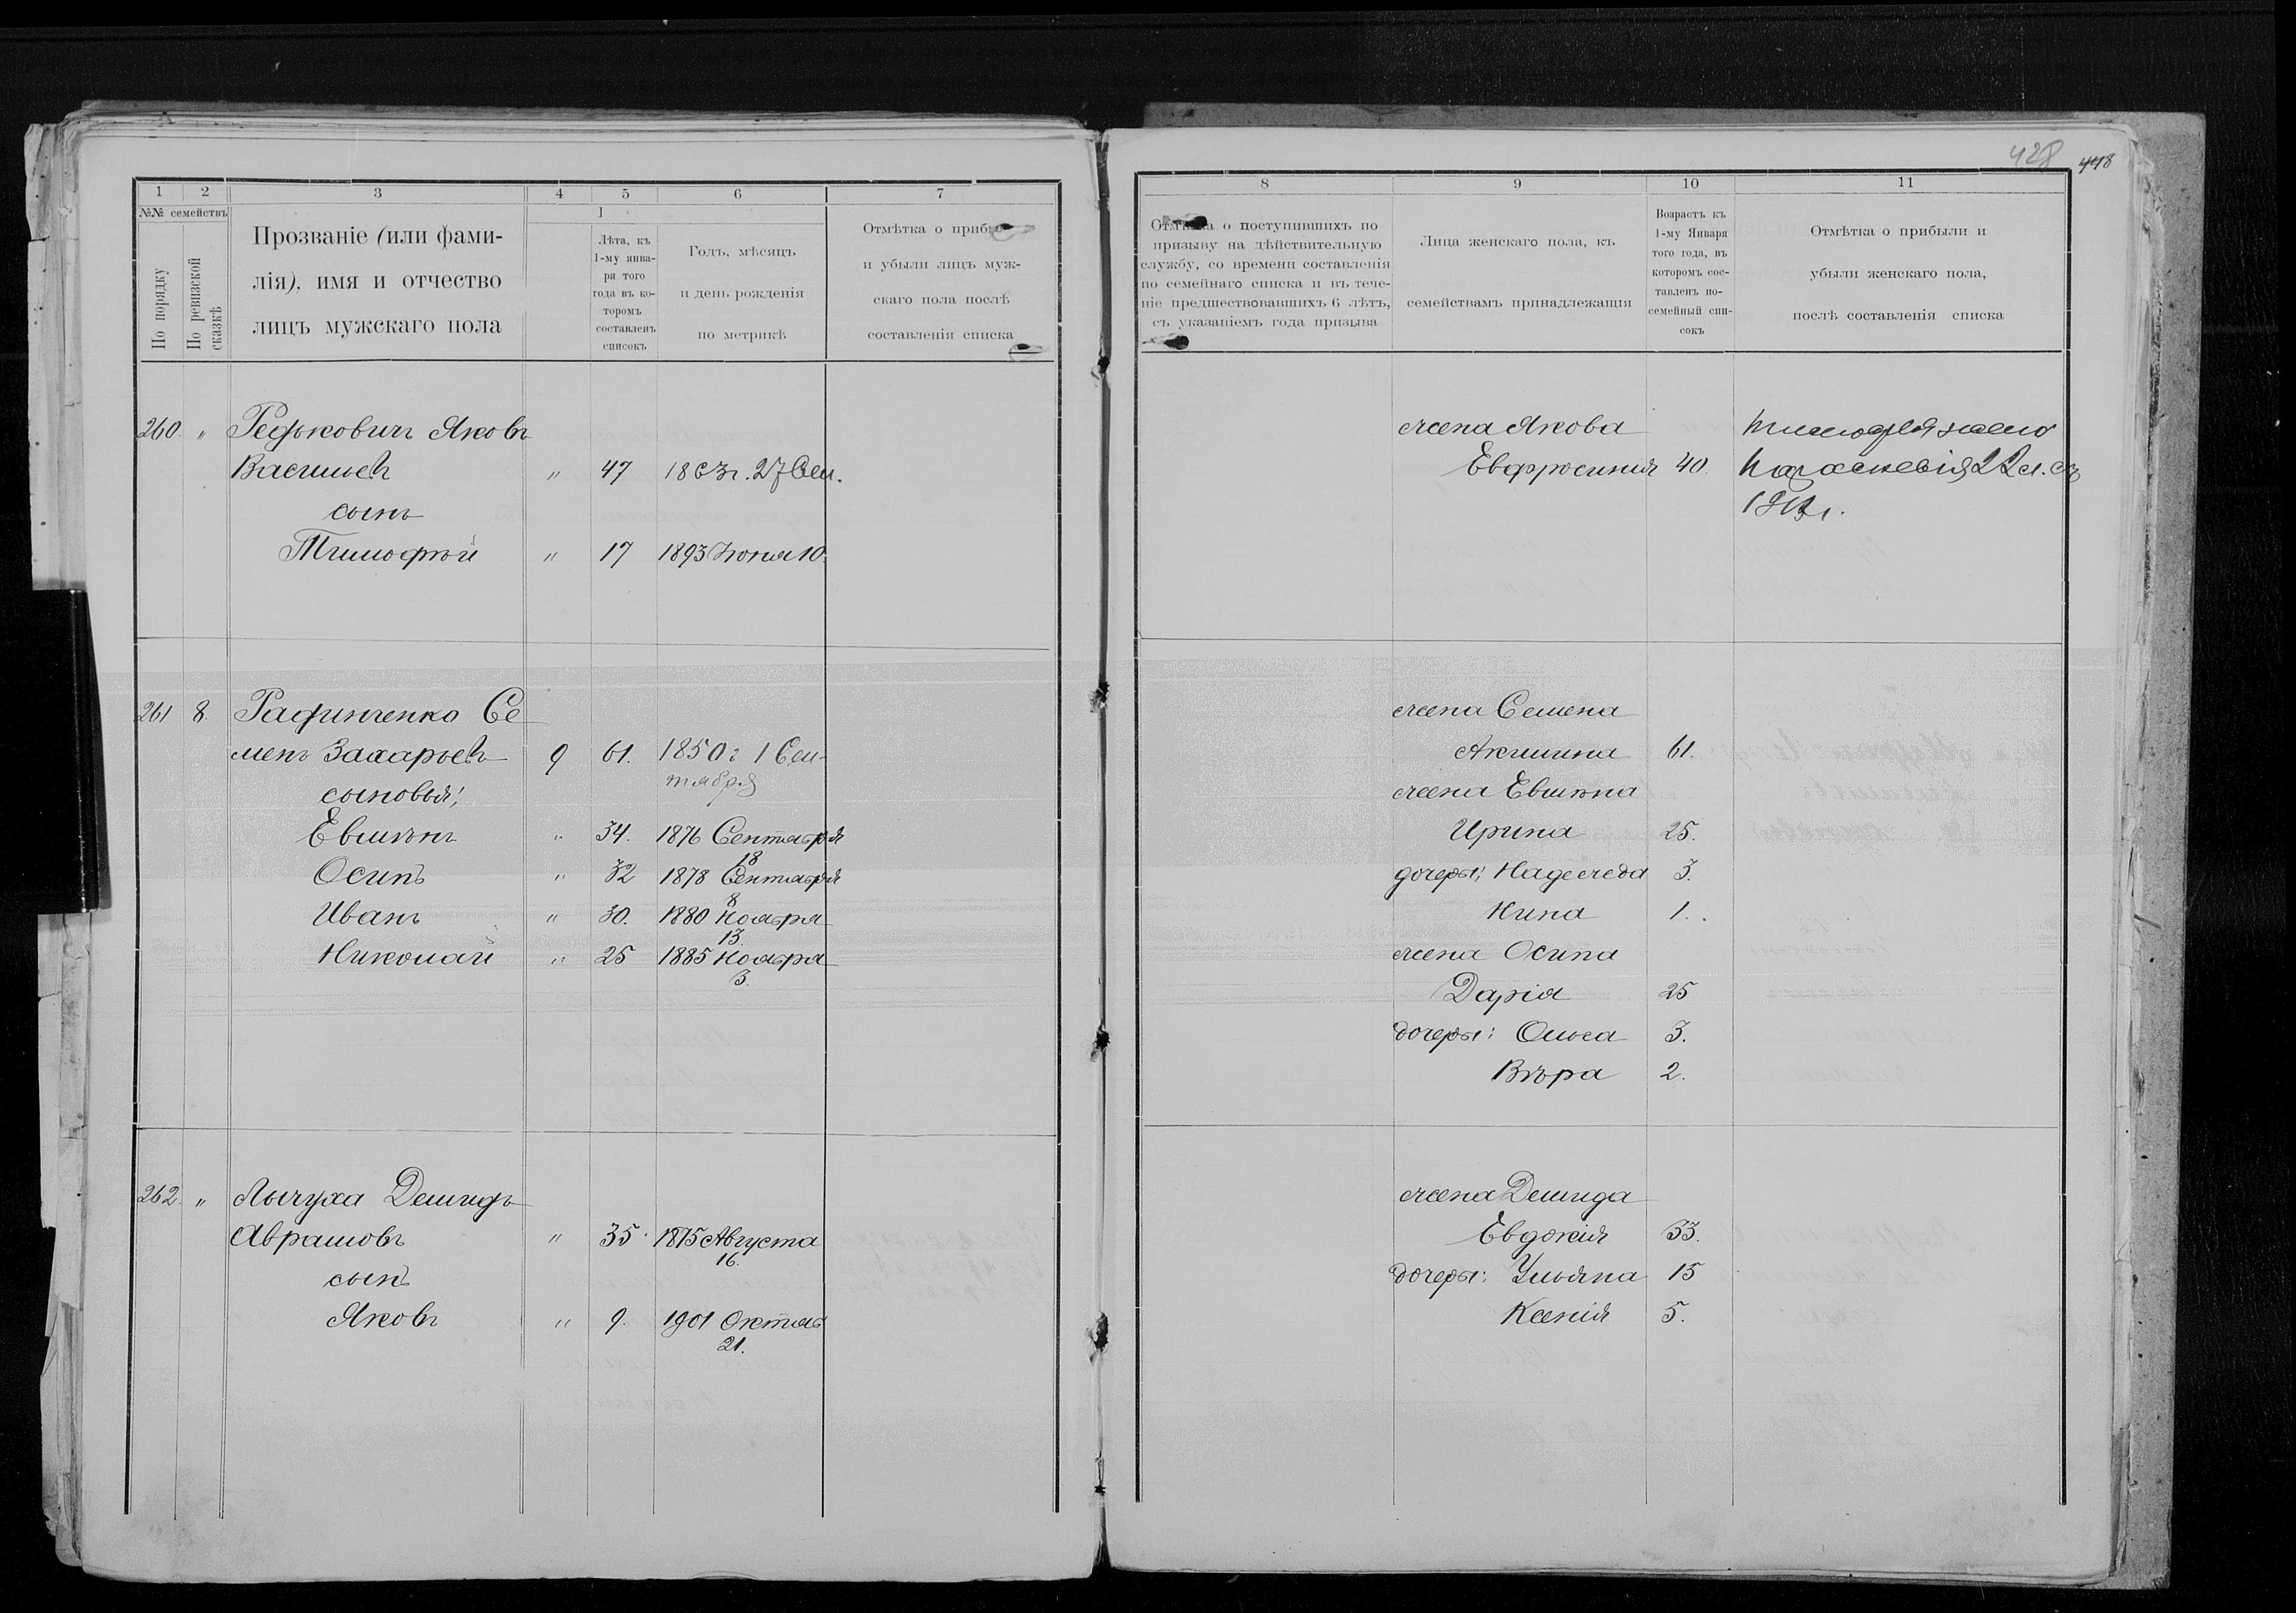 428 448
1 2 3 4 5 6 7
№№ семействъ
По порядку
По ревизской сказкѣ
Прозваніе (или фами-
лія), имя и отчество
лицъ мужскаго пола
I
Лѣта, къ
1-му янва-
ря того
года въ ко-
торомъ
составленъ
списокъ
Годъ, мѣсяцъ
и день рожденія
по метрикѣ
Отмѣтка о прибы
и убыли лицъ муж-
скаго пола послѣ
составленія списка
260 " Редькович Яковъ
Васильев " 47 1863 г. 27 Сен.
сынъ
Тимофѣй " 17 1893 Июня 10.
261 8. Радинченко Се
менъ Захарьев 9 61. 1850 г 1 Сен-
тября
сыновья:
Евменъ " 34. 1876 Сентября
18
Осипъ " 32 1878 Сентября
8
Иванъ " 30. 1880 Ноября
13.
Николай " 25 1885 Ноября
3.
262 " Лычуха Демидъ
Аврамовъ " 35 1875 Августа
16.
сынъ
Яковъ " 9. 1901 Октяб
21.
8 9 10 11
Отмѣтка о поступившихъ по
призыву на дѣйствительную
службу, со времени составленія
по семейнаго списка и въ тече-
ніе предшествовавшихъ 6 лѣтъ,
съ указаніемъ года призыва
Лица женскаго пола, къ
семействамъ принадлежащія
Возрастъ къ
1-му Января
того года, въ
которомъ сос-
тавленъ по-
семейный спи-
сокъ
Отмѣтка о прибыли и
убыли женскаго пола,
послѣ составленія списка
жена Якова Тимофея жена
Евфросинія 40. Параскевія 22 л. съ
жена Семена
Акилина 61.
жена Евмена
Ирина 25.
дочеры: Надежда 3.
Нина 1.
жена Осипа
Дарія 25
дочеры: Ольга 3.
Вѣра 2.
жена Демида
Евдокія 33.
дочеры: Ульяна 15
Ксенія 5.